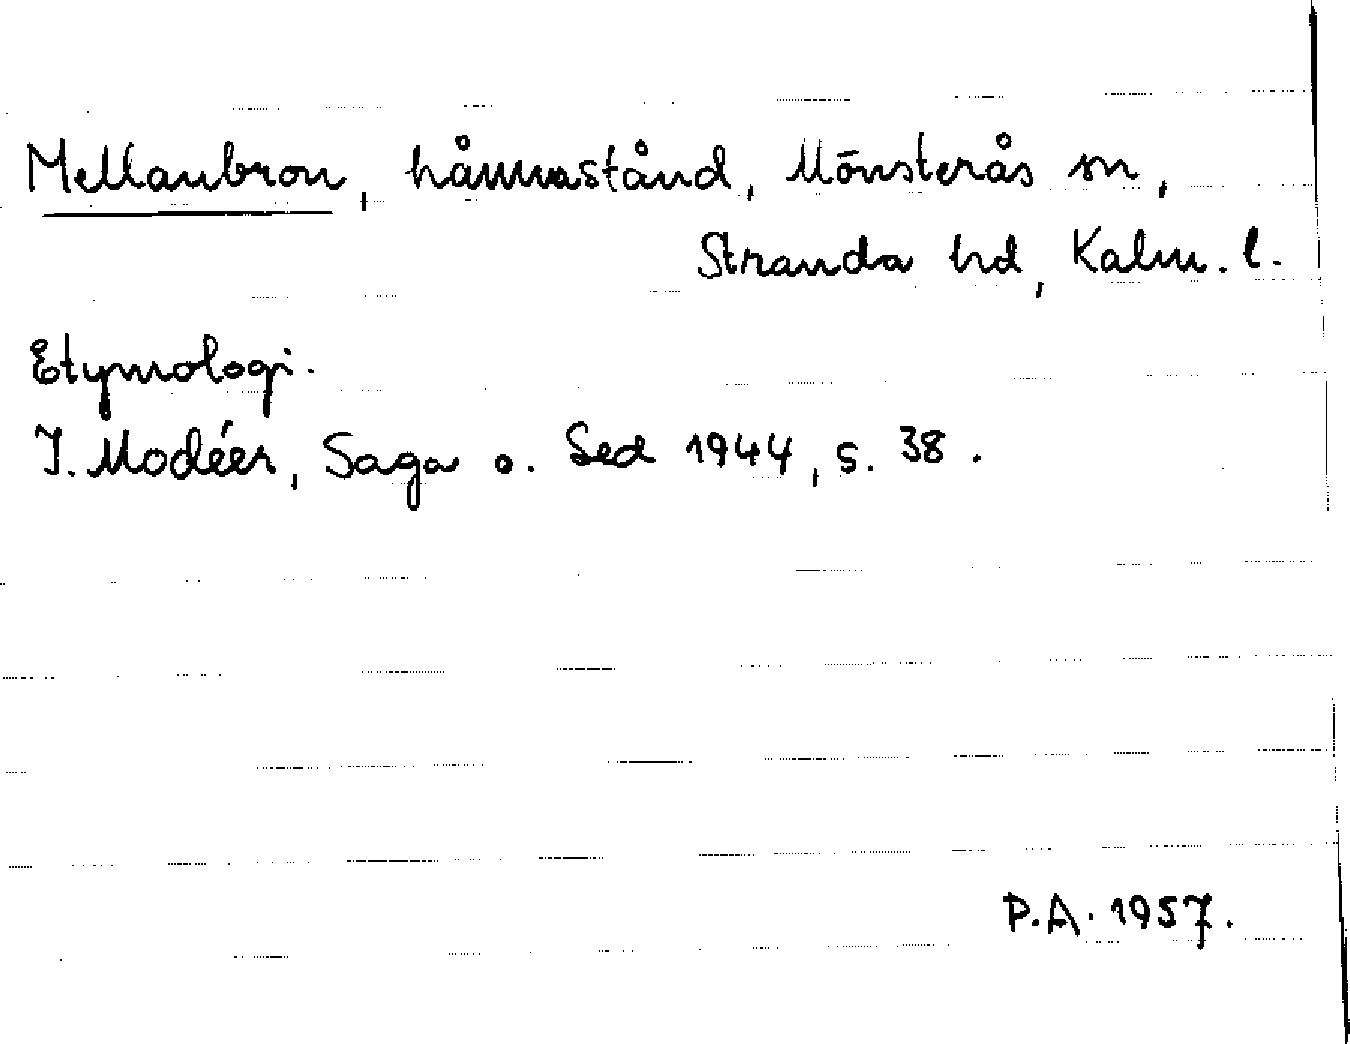 Mellanbron, håmnastånd, Mönsterås sn,
Stranda hd, Kalm. l.
Etymologi.
I. Modéer, Saga o. Sed 1944, s. 38.
P.A. 1957.